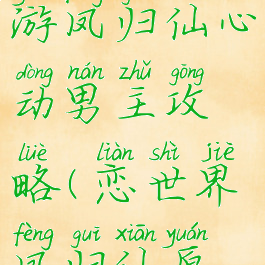 游凤归仙心
dòng nán zhǔ gōng
动男主攻
lüè liàn shì jiè
略(恋世界
fèng guī xiān yuán
凤归仙原